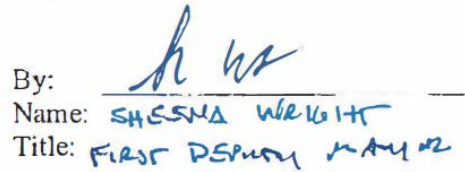 By:
Name: SHEENA WRIGHT
Title: FIRST DEPUTY MAYOR